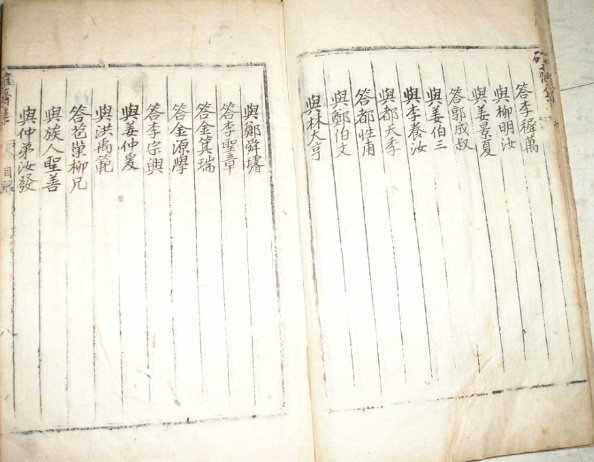 答李穉萬
與柳明汝
與姜景夏
答郭成叔
與姜伯三
與李養汝
與都天季
答都性甫
與鄭伯文
與林大亨
與鄭舜
答李聖章
答金箕瑞
答金源學
答李宗興
與姜仲爰
與洪禹範
答 柳兄
與族人聖善
與仲弟汝發
目錄 八